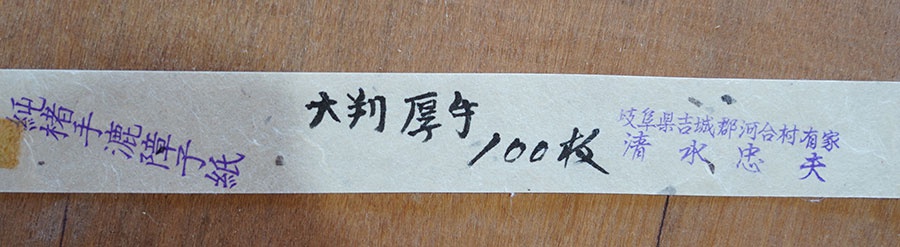 純楮手漉障子紙
大判 厚手
100枚
岐阜県吉城郡河合村有家
清水忠夫